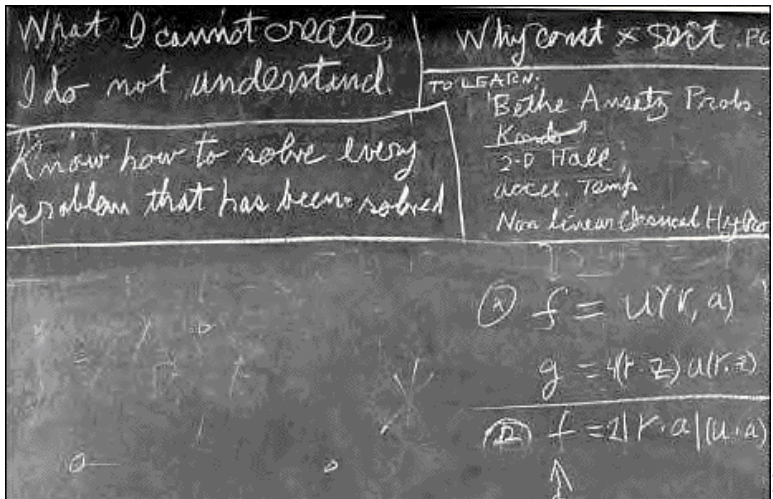 What I cannot create,
I do not understand.
Know how to solve every
problem that has been solved
Why const × sort . PO
TO LEARN:
Bethe Ansatz Probs.
Kondo
2-D Hall
accel. Temp
Non linear Classical Hydro
f = u(r, a)
g = 4(r·z) u(r, z)
f = 2|r·a|(u·a)